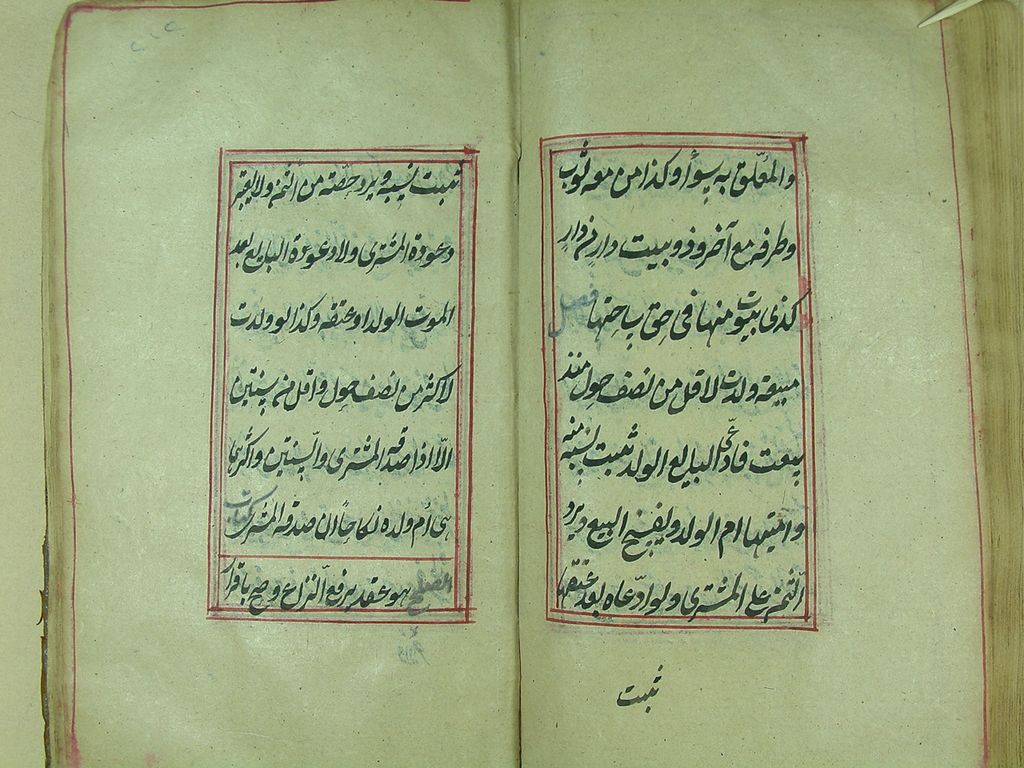 والمعلق به سواء وكذا من معه ثوب
وطرفه مع آخر وذو بيت دار من دار
كذى بيوت منها فى حق ساحتها فصل
مبيعة ولدت لاقل من نصف حول منذ
بيعت فادعى البايع الولد ثبت نسبه منه
واميتها ام الولد ويفسخ البيع ويرد
الثمن على المشترى ولو ادعاه بعد عتقها
ثبت
ثبت نسبه ويرد حصته من الثمن ولا يعتبر
دعوة المشترى ولا دعوة البايع بعد
الموت الولد او عتقه وكذا لو ولدت
لاكثر من نصف حول واقل من سنتين
الا اذا صدقه المشترى والسنتين واكثر
هى ام ولده نكاحا ان صدقه المشترى كتاب
الصلح هو عقد يرفع النزاع وصح باقرار